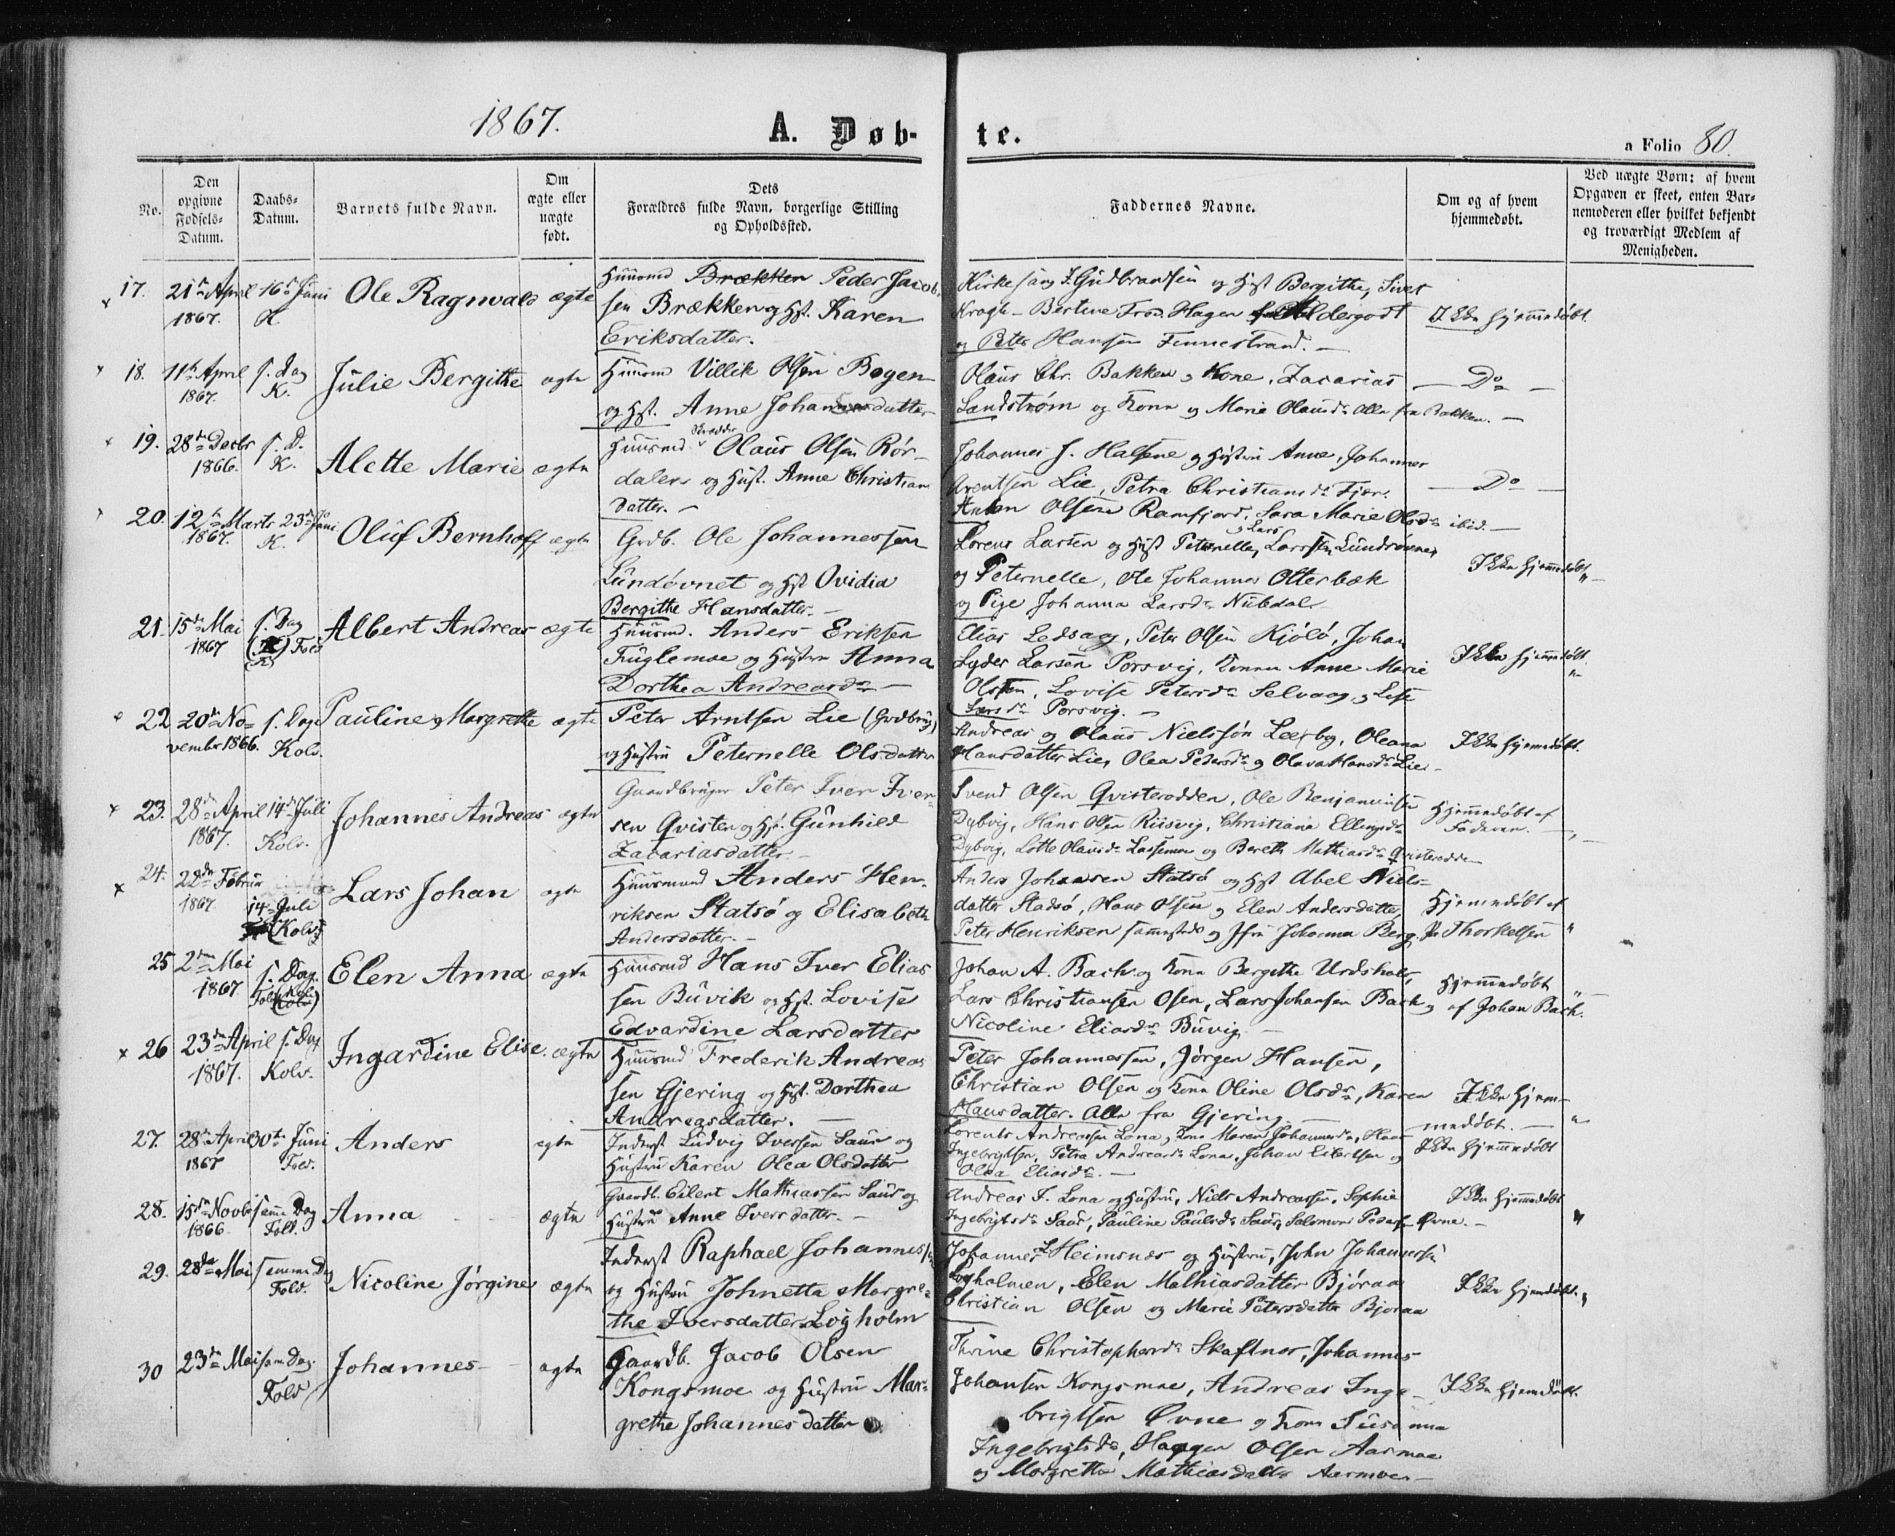 1867.
A. Døb-
te.
a Folio 80.
No.
Den opgivne Fødsels-Datum.
Daabs-Datum.
Barnets fulde Navn.
Om ægte eller uægte født.
Dets Forældres fulde Navn, borgerlige Stilling og Opholdssted.
Faddernes Navne.
Om og af hvem hjemmedøbt.
Ved uægte Børn: af hvem Opgaven er skeet, enten Barnemoderen eller hvilket bekjendt og troværdigt Medlem af Menigheden.
17. 21de April 1867. 16de Juni K. Ole Ragnvald ægte
Huusmd Brækken Peder Jacob-
sen Brækken og Hst. Karen
Eriksdatter.
Kirkesang. J. Gudbrandsen og Hust Bergithe, Sivert
Kragh - Bertine Hagen Aldergodt
og Peter Hansen Finnestrand. —
Ikke hjemmedøbt.
18. 11te April 1867. s. Dag K. Julie Bergithe ægte
Huusmd Villik Olsen Bogen
og Hst. Anne Johannesdatter
Olaus Chr. Bakken og Kone, Zacarias
Sandstrøm og Kona og Marie Olausdr. Alle fra Bakken. —
— Do —
19. 28de Decbr 1866. s. D. K. Alette Marie ægte
Huusmd Skrædder Olaus Olsen Rør-
dalen og Hust. Anne Christian
datter. —
Johannes J. Halsene og Hustru Anne, Johannes
Arentsen Lie, Petra Christiansdr. Fjær.
Anton Olsen Ramfjord, Sara Marie Olsdr. ibid. —
— Do —
20. 12te Marts 1867. 23de Juni K. Oluf Bernhoff ægte
Grdb. Ole Johannessen
Lundøvnet og Hst Ovidia
Bergithe Hansdatter. —
Lorens Larsen og Hust Peternelle, Lars Larssen Lundøvnes
og Peternelle, Ole Johanna Otterbæk
og Pige Johanna Larsdr. Nubdal
Ikke hjemmedøbt
21. 15de Mai 1867 s. Dag Fold Albert Andreas ægte
Huusmd. Anders Eriksen
Fuglemoe og Hustru Anna
Dorthea Andreasdr. —
Elias Ledsaag, Peter Olsen Kjølø, Johan
Lyder Larsen Porsvig, Konen Anne Marie
Olssen, Lovise Petersdr. Selvaag, og Lise
Larsdr. Porsvig. —
Ikke hjemmedøbt.
22 20de November 1866. s. Dag Kolv. Pauline Margrethe ægte
Peter Arntsen Lie (Grdbrug)
og Hustru Peternelle Olsdatter
Andreas og Olaus Nielssøn Leerby, Oleana
Hansdatter Lie, Olea Petersdr. og Olava Hansdr. Lie
Ikke hjemmedøbt.
23. 28de April 1867. 14de Juli Kolv. Johannes Andreas ægte
Gaardbruger Peter Iver Iver-
sen Qvisten og Hst. Gunhild
Zacariasdatter. —
Svend Olsen Qvisterodden, Ole Benjaminsen
Dybvig, Hans Olsen Riisvig, Christiana Ellingsdr.
Dybvig, Lotte Olausdr. Lassemoe og Bereth Mathiasdr. Qvisterodden
Hjemmedøbt af
Faderen. —
24. 22de Februar 1867. 14de Juli (Kolv.) Lars Johan ægte
Huusmand Anders Hen-
riksen Statsø og Elisabeth
Andersdatter. —
Anders Johansen Statsø og Hst Abel Niels-
datter Stadsø, Hans Olsen og Elen Andersdatter,
Peter Henriksen sammesteds og Jfr. Johanna Berg.
Hjemmedøbt af
P. Thorkelsen
25 2den Mai 1867 s. Dag. Elen Anna ægte
Huusmd Hans Iver Elias
sen Buvik og Hst. Lovise
Edvardine Larsdatter
Johan A. Bach og Kona Bergithe Urdshals,
Lars Christiansen Osen, Lars Johansen Bach og
Nicoline Eliasdr. Buvig. —
Hjemmedøbt
af Johan Bach.
26 23de April 1867. s. Dag Kolv. Ingardine Elise. ægte
Huusmd Frederik Andreas
sen Gjering og Hst. Dorthea
Andreasdatter. —
Peter Johannessen, Jørgen Hansen,
Christian Olsen og Kona Oline Olsdr., Karen
Hansdatter. Alle fra Gjering
Ikke hjem-
medøbt. —
27. 28de April 1867 30te Juni Fold. Anders ægte
Inderst Ludvig Iversen Saur og
Hustru Karen Olea Olsdatter
Lorents Andreassen Lona, Kona Maren Johannesdr., Hans
Ingebrigtsen, Petra Andreasdr. Lona, Johan Eilertsen og
Olea Eliasdr. —
Ikke hjemmedøbt
28. 15de Novbr 1866. samme Dag Fold. Anna ægte
Gaardb. Eilert Mathiassen Saur og
Hustru Anne Iversdatter. —
Andreas I. Lona og Hustru, Niels Andreassen, Sophie
Ingebrigtsdr. Saur, Pauline Paulsdr. Saur, Salomon Peders. Øvne. —
Ikke hjemmedøbt
29. 28de Mai samme Dag Fold. Nicoline Jørgine ægte
Inderst Raphael Johannessen
og Hustru Johnetta Margre-
the Iversdatter Løgholm
Johannes Heimsnæs og Hustru, John Johannessen
Løgholmen, Elen Mathiasdatter Bjøraa
Christian Olsen og Marie Petersdatter Bjøraa
Ikke hjemmedøbt.
30 23de Mai sam. Dag. Fold Johannes ægte
Gaardb. Jacob Olsen
Kongsmoe og Hustru Mar-
grethe Johannesdatter
Thrine Christophersdr. Skaftnes, Johannes
Johansen Kongsmoe, Andreas Inge-
brigtsen Øvne og Kone Susanna
Ingebrigtsdr., Haagen Olsen Aarmoe
og Margrethe Mathiasdatter Aarmoen —
Ikke hjemmedøbt.